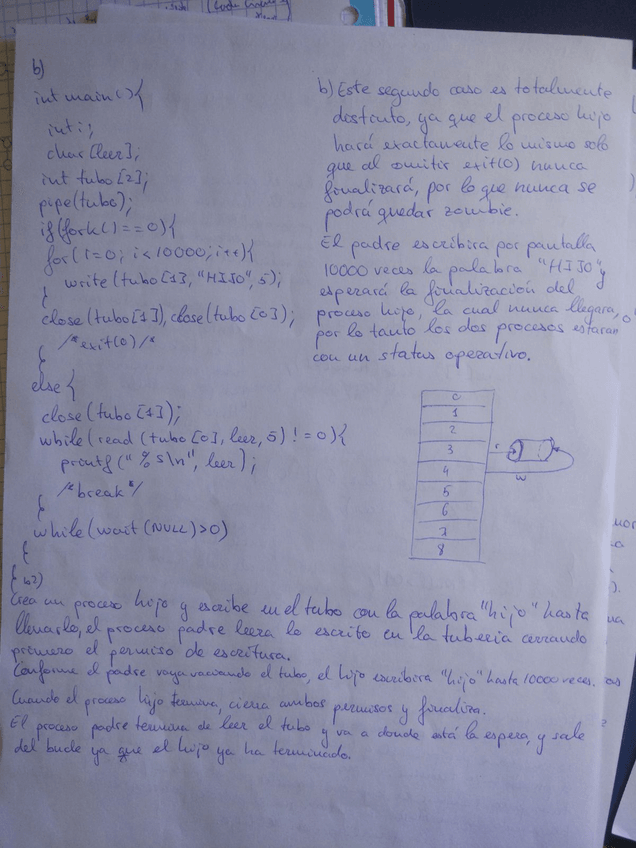 b)
int main(){
int i;
char[leer];
int tubo[2];
pipe(tubo);
if(fork()==0){
for(i=0; i<10000; i++){
write(tubo[1], "HIJO", 5);
}
close(tubo[1]), close(tubo[0]);
/*exit(0)/*
}
else{
close(tubo[1]);
while(read(tubo[0], leer, 5) != 0){
printf("%s\n", leer);
/*break*/
}
while(wait(NULL)>0)
}
}
b) Este segundo caso es totalmente
distinto, ya que el proceso hijo
hará exactamente lo mismo solo
que al omitir exit(0) nunca
finalizará, por lo que nunca se
podrá quedar zombie.
El padre escribira por pantalla
10000 veces la palabra "HIJO" y
esperará la finalización del
proceso hijo, la cual nunca llegara,
por lo tanto los dos procesos estaran
con un status operativo.
0
1
2
3
4
5
6
7
8
r
w
b2)
Crea un proceso hijo y escribe en el tubo con la palabra "hijo" hasta
llenarlo, el proceso padre leera lo escrito en la tuberia cerrando
primero el permiso de escritura.
Conforme el padre vaya vaciando el tubo, el hijo escribira "hijo" hasta 10000 veces.
Cuando el proceso hijo termina, cierra ambos permisos y finaliza.
El proceso padre termina de leer el tubo y va a donde está la espera, y sale
del bucle ya que el hijo ya ha terminado.